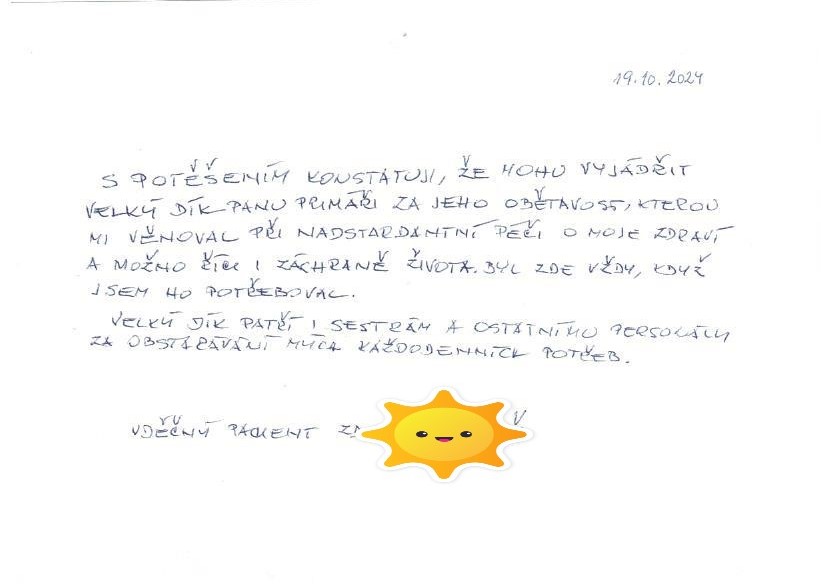 19.10.2024
S POTĚŠENÍM KONSTATUJI, ŽE MOHU VYJÁDŘIT
VELKÝ DÍK PANU PRIMÁŘI ZA JEHO OBĚTAVOST, KTEROU
MI VĚNOVAL PŘI NADSTARDANTNÍ PÉČI O MOJE ZDRAVÍ
A MOŽNO ŘÍCI I ZÁCHRANĚ ŽIVOTA. BYL ZDE VŽDY, KDYŽ
JSEM HO POTŘEBOVAL.
VELKÝ DÍK PATŘÍ I SESTRÁM A OSTATNÍMU PERSONÁLU
ZA OBSTARÁVÁNÍ MÝCH KAŽDODENNÍCH POTŘEB.
VDĚČNÝ PACIENT